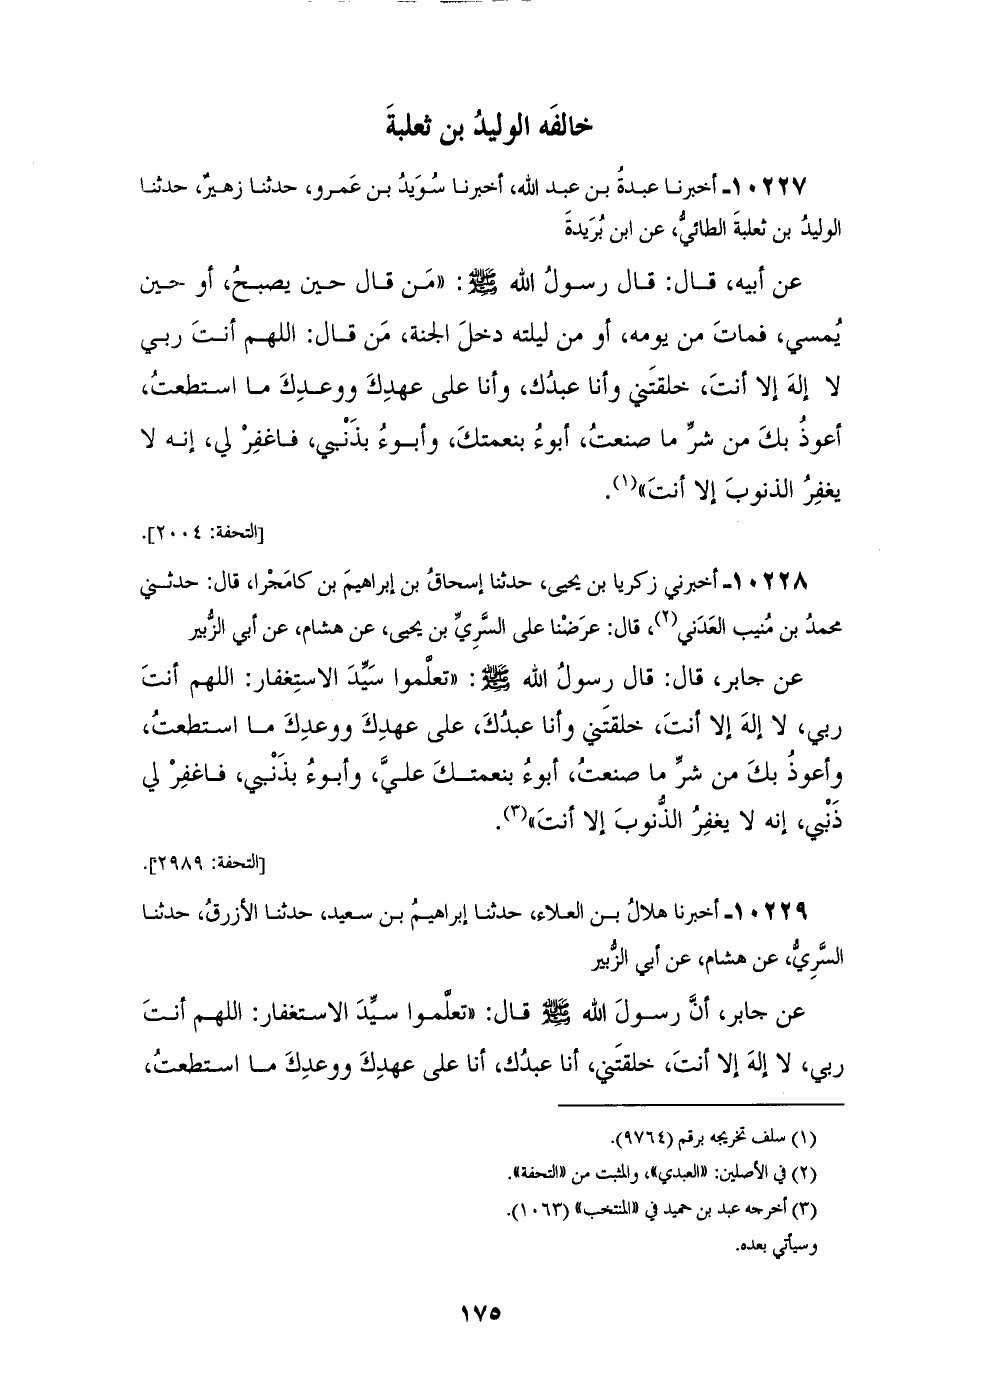 خالفَه الوليدُ بن ثعلبةَ
١٠٢٢٧ـ أخبرنا عبدةُ بن عبد الله، أخبرنا سُوَيدُ بن عَمرو، حدثنا زهيرٌ، حدثنا
الوليدُ بن ثعلبةَ الطائيُّ، عن ابن بُرَيدةَ
عن أبيه، قال: قال رسولُ الله ﷺ: «مَن قال حين يصبحُ، أو حين
يُمسي، فماتَ من يومه، أو من ليلته دخلَ الجنة، مَن قال: اللهم أنتَ ربي
لا إلهَ إلا أنتَ، خلقتَني وأنا عبدُك، وأنا على عهدِكَ ووعدِكَ ما استطعتُ،
أعوذُ بكَ من شرِّ ما صنعتُ، أبوءُ بنعمتكَ، وأبوءُ بذَنْبي، فاغفِرْ لي، إنه لا
يغفِرُ الذنوبَ إلا أنتَ»(١).
[التحفة: ٢٠٠٤].
١٠٢٢٨ـ أخبرني زكريا بن يحيى، حدثنا إسحاقُ بن إبراهيمَ بن كامَجْرا، قال: حدثني
محمدُ بن مُنيب العَدَني(٢)، قال: عرَضْنا على السَّرِيِّ بن يحيى، عن هشام، عن أبي الزُّبير
عن جابر، قال: قال رسولُ الله ﷺ: «تعلَّموا سَيِّدَ الاستِغفار: اللهم أنتَ
ربي، لا إلهَ إلا أنتَ، خلقتَني وأنا عبدُكَ، على عهدِكَ ووعدِكَ ما استطعتُ،
وأعوذُ بكَ من شرِّ ما صنعتُ، أبوءُ بنعمتكَ عليَّ، وأبوءُ بذَنْبي، فاغفِرْ لي
ذَنْبي، إنه لا يغفِرُ الذُّنوبَ إلا أنتَ»(٣).
[التحفة: ٢٩٨٩].
١٠٢٢٩ـ أخبرنا هلالُ بن العلاء، حدثنا إبراهيمُ بن سعيد، حدثنا الأزرقُ، حدثنا
السَّرِيُّ، عن هشام، عن أبي الزُّبير
عن جابر، أنَّ رسولَ الله ﷺ قال: «تعلَّموا سيِّدَ الاستغفار: اللهم أنتَ
ربي، لا إلهَ إلا أنتَ، خلقتَني، أنا عبدُك، أنا على عهدِكَ ووعدِكَ ما استطعتُ،
(١) سلف تخريجه برقم (٩٧٦٤).
(٢) في الأصلين: «العبدي»، والمثبت من «التحفة».
(٣) أخرجه عبد بن حميد في «المنتخب» (١٠٦٣).
وسيأتي بعده.
١٧٥